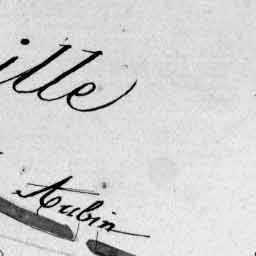 ille
St Aubin